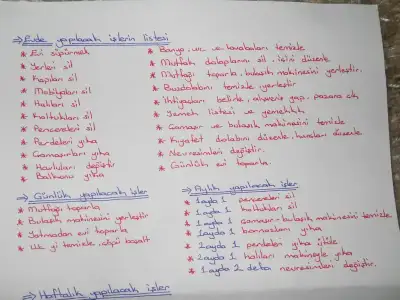 ⇒ Evde yapılacak işlerin listesi
* Evi süpürmek
* Yerleri sil
* Kapıları sil
* Mobilyaları sil
* Halıları sil
* Koltukları sil
* Pencereleri sil
* Perdeleri yıka
* Çamaşırları yıka
* Havluları değiştir
* Balkonu yıka
* Banyo, wc ve lavaboları temizle
* Mutfak dolaplarını sil, içini düzenle
* Mutfağı toparla, bulaşık makinesini yerleştir.
* Buzdolabını temizle, yerleştir
* İhtiyaçları belirle, alışveriş yap, pazara çık
* Yemek listesi ve yemeklik
* Çamaşır ve bulaşık makinesini temizle
* Kıyafet dolabını düzenle,
* Nevresimleri değiştir.
* Günlük evi toparla.
⇒ Günlük yapılacak işler
* Mutfağı toparla
* Bulaşık makinesini yerleştir
* Yatmadan evi toparla
* Wc yi temizle, çöpü boşalt
⇒ Aylık yapılacak işler
* 1 ayda 1 pencereleri sil
* 1 ayda 1 koltukları sil
* 1 ayda 1 çamaşır-bulaşık makinesini temizle
* 1 ayda 1 bornozları yıka
* 2 ayda 1 perdeleri yıka ütüle
* 2 ayda 1 halıları makineyle yıka
* 1 ayda 2 defa nevresimleri değiştir.
⇒ Haftalık yapılacak işler